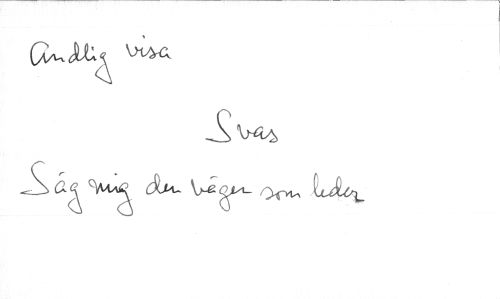 Andlig visa
Svas
Säg mig den vägen som leder